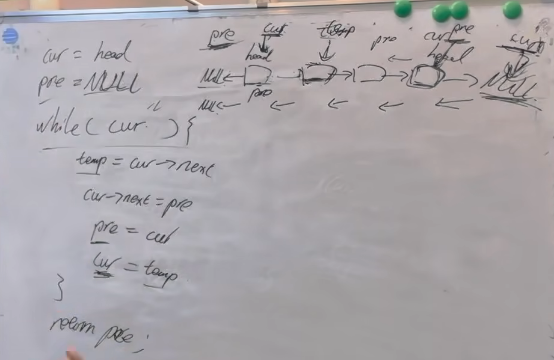 cur = head
pre = NULL
while( cur ) {
temp = cur->next
cur->next = pre
pre = cur
cur = temp
}
return pre;
pre cur temp pre cur pre cur
head head
NULL NULL
pre
NULL